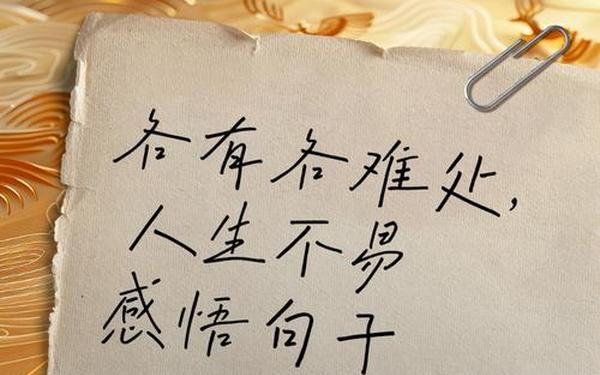 各有各难处，
人生不易
感悟句子